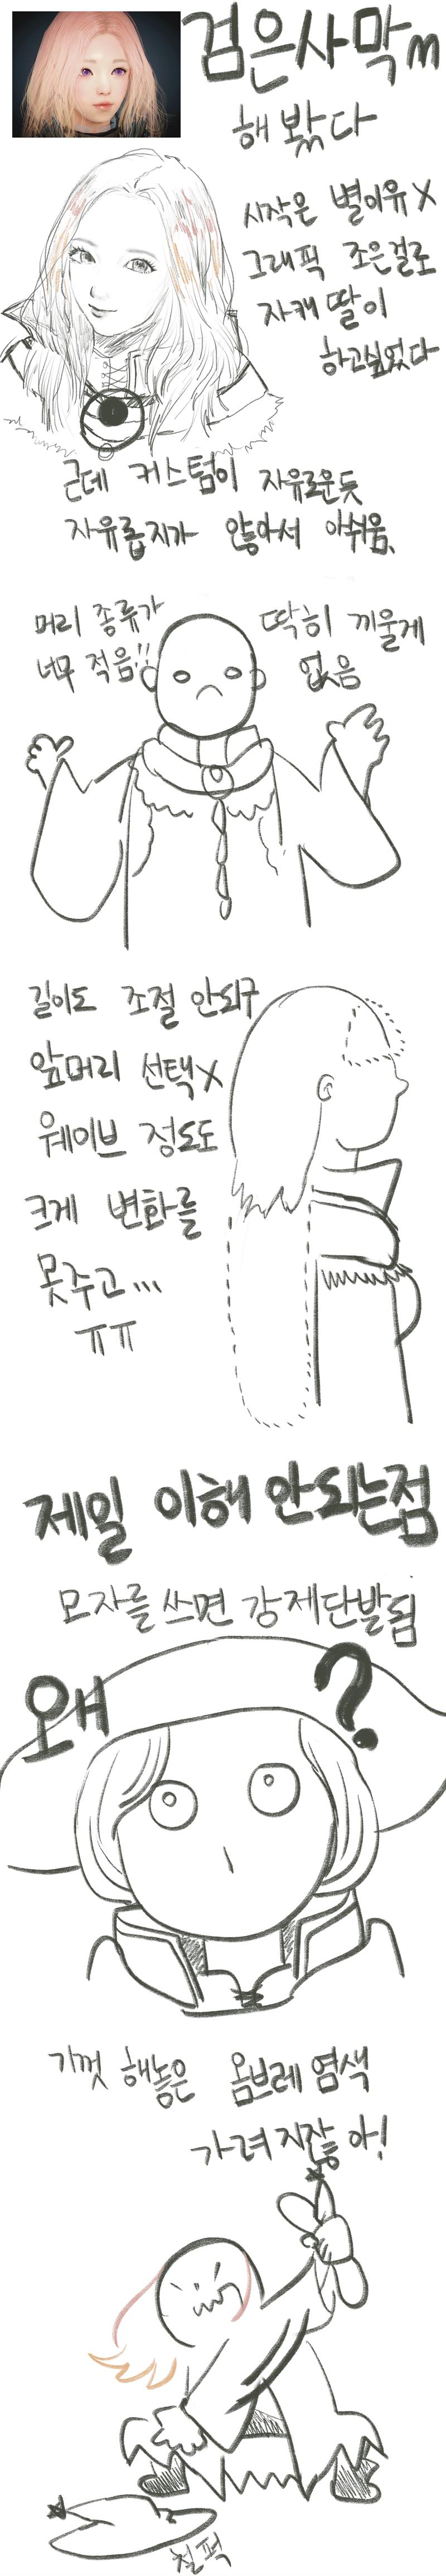 검은사막m
해봤다
시작은 별이유X
그래픽 조은걸로
자캐딸이
하고싶었다
근데 커스텀이 자유로운듯
자유롭지가 않아서 아쉬움.
머리 종류가
너무 적음!!
딱히 끼울게
없음
길이도 조절 안되구
앞머리 선택X
웨이브 정도도
크게 변화를
못주고...
ㅠㅠ
제일 이해 안되는점
모자를 쓰면 강제단발됨
왜
?
기껏 해놓은 옴브레염색
가려지잖아!
철퍽